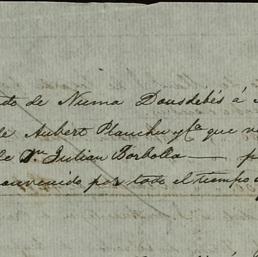 de Numa Dousdebés á
de Aubert Planchu y Ca que
de Dn Julian Borbolla —
convenido por todo el tiempo